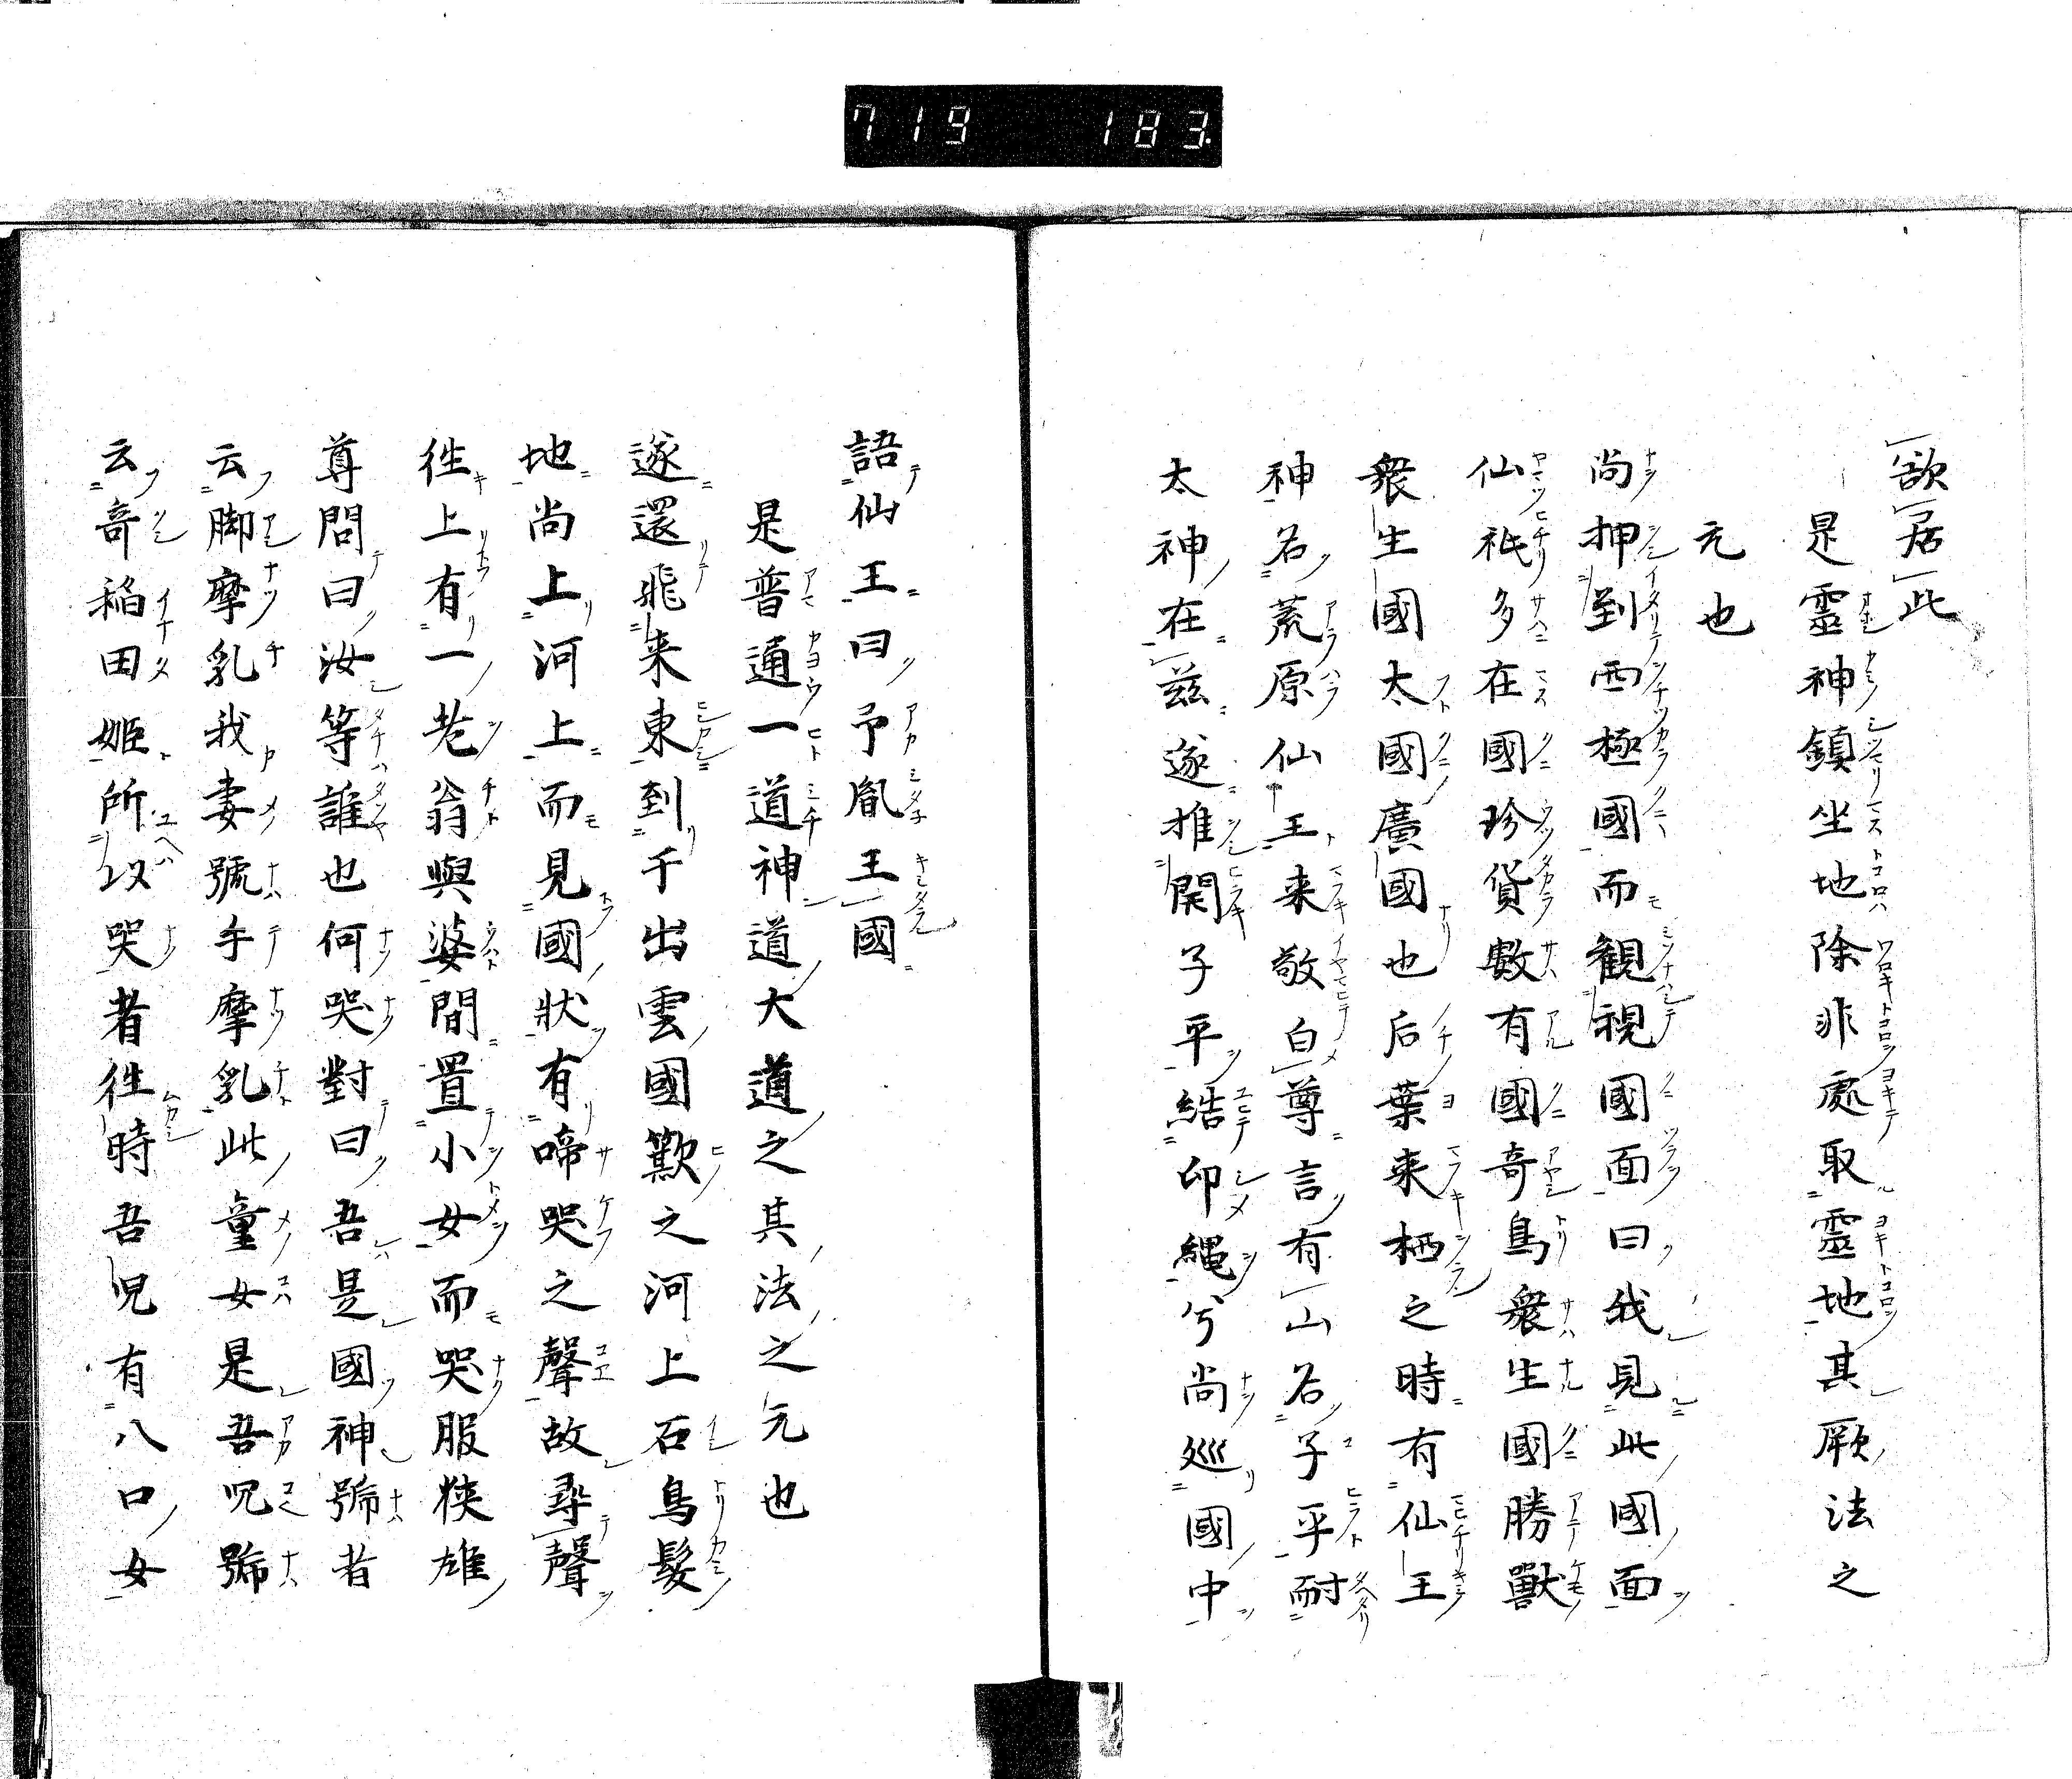 719 183.
欲居此
是靈神鎮坐地除非處取靈地其厥法之
元也
尚押到西極國而観視國面曰我見此國面
仙祇多在國珍貨數有國奇鳥衆生國勝獸
衆生國太國廣國也后葉来栖之時有仙王
神名荒原仙王来敬白尊言有山名子平耐
太神在茲遂推開子平結印縄兮尚巡國中
語仙王曰予胤王國
是普通一道神道大道之其法之元也
遂還飛来東到千出雲國歎之河上石鳥髮
地尚上河上而見國狀有啼哭之聲故尋聲
徃上有一老翁與婆間置小女而哭服狹雄
尊問曰汝等誰也何哭對曰吾是國神號者
云脚摩乳我妻號手摩乳此童女是吾児號
云奇稲田姫所以哭者徃時吾児有八口女